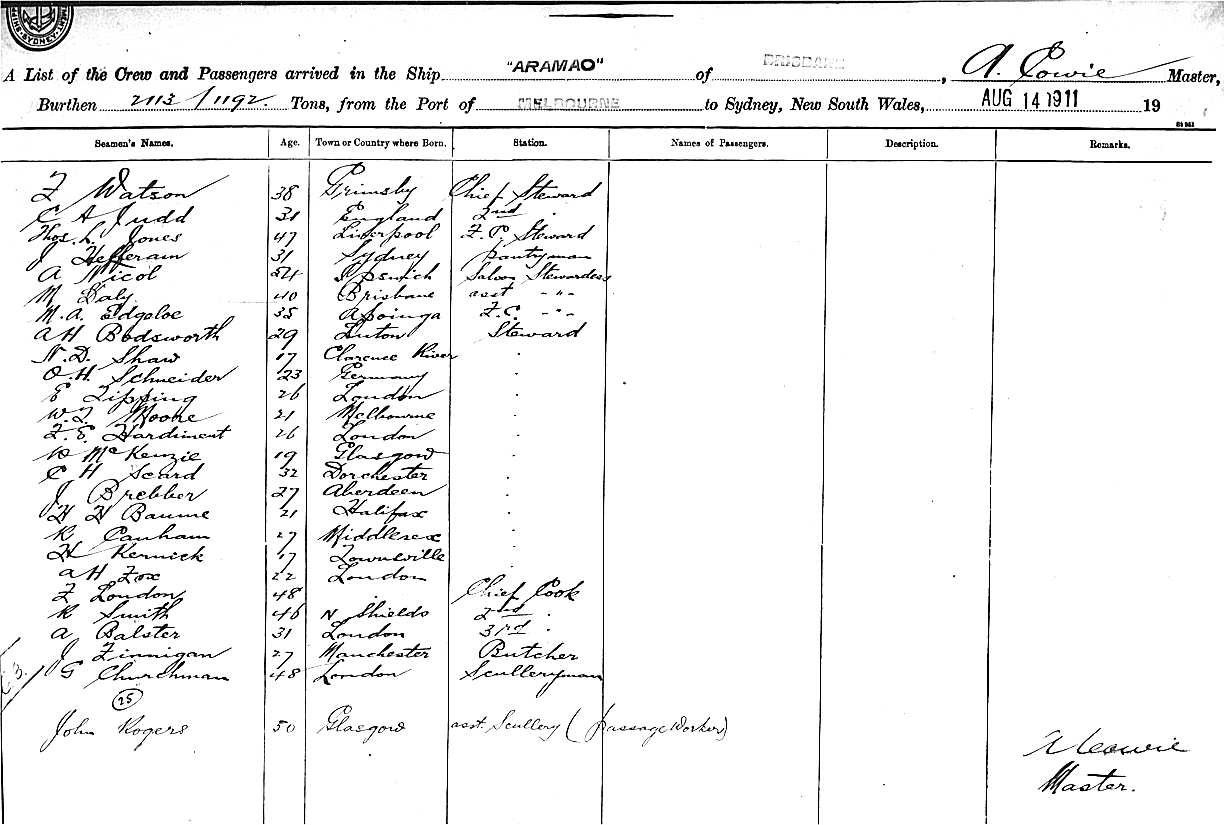 SYDNEY
A List of the Crew and Passengers arrived in the Ship "ARAMAO" of BRISBANE, A. Cowie Master,
Burthen 2113/1192 Tons, from the Port of MELBOURNE to Sydney, New South Wales, AUG 14 1911 19
Seamen's Names. Age. Town or Country where Born. Station. Names of Passengers. Description. Remarks.
F Watson 38 Grimsby Chief Steward
C A Judd 31 England 2nd .
Thos. L. Jones 47 Liverpool F.C. Steward
J Hefferain 31 Sydney pantryman
A Nicol 54 Ipswich Saloon Stewardess
M Daly 40 Brisbane asst - " -
M. A. Edgeloe 35 Apoinga F.C. - " -
A H Bodsworth 29 Luton Steward
N. D. Shaw 17 Clarence River .
O. H. Schneider 23 Germany .
E Tipping 26 London .
W. F. Moore 21 Melbourne .
F. E. Hardiment 26 London .
W McKenzie 19 Glasgow .
C H Scard 32 Dorchester .
J Brebber 27 Aberdeen .
H H Baume 21 Halifax .
R Canham 27 Middlesex .
H Kernick 17 Townsville .
A H Fox 22 London
F London 48 Chief Cook
R Smith 46 N Shields 2nd .
A Balster 31 London 3rd .
J Finnigan 27 Manchester Butcher
G Churchman 48 London Sculleryman
25
John Rogers 50 Glasgow asst. Scullery (passage Worker)
A Cowie
Master.